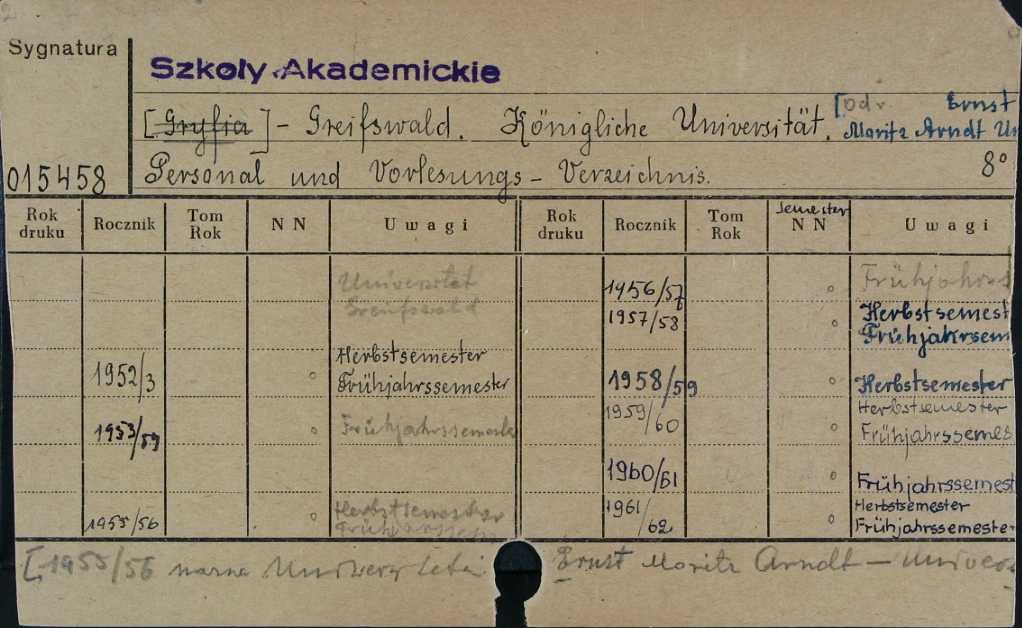 Sygnatura
Szkoły Akademickie
[Gryfia] - Greifswald. Königliche Universität. [Od r. Ernst
Moritz Arndt Un
015458 Personal und Vorlesungs - Verzeichnis. 8°
Rok druku Rocznik Tom Rok N N Uwagi Rok druku Rocznik Tom Rok semester N N Uwagi
Universität 1956/57 o Frühjahrs
Greifswald 1957/58 o Herbstsemest
Frühjahrsem
Herbstsemester
1952/3 o Frühjahrssemester 1958/59 o Herbstsemester
1959/60 Herbstsemester
1953/54 o Frühjahrssemeste o Frühjahrssemes
1960/61 o Frühjahrssemest
1955/56 o Herbstsemester 1961/62 o Herbstsemester
Frühjahrssemester
[1955/56 Ernst Moritz Arndt - Univers